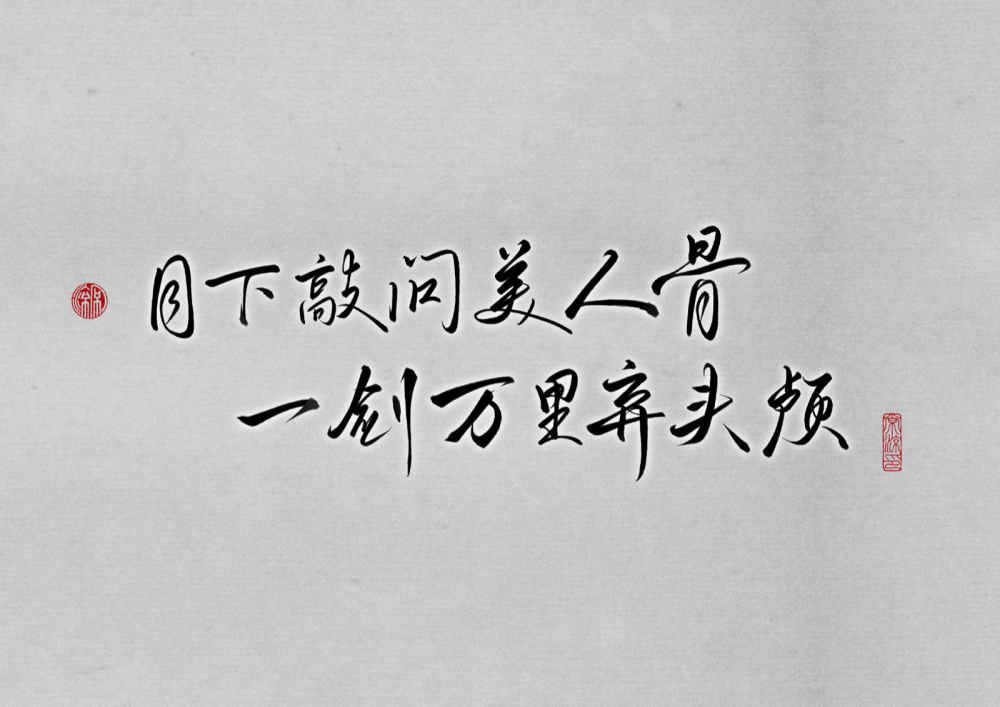 月下敲问美人骨
一剑万里弃头颅